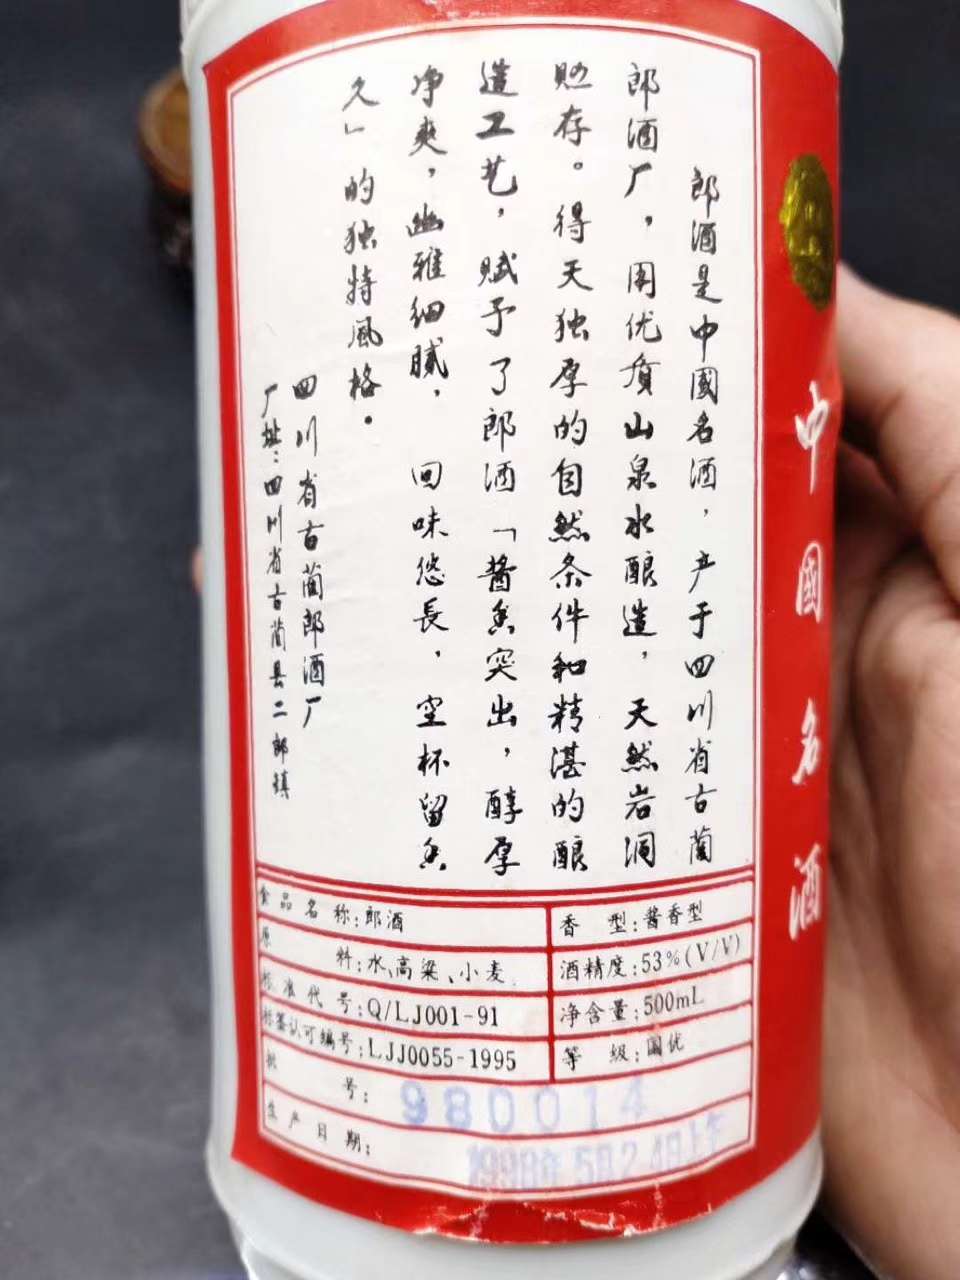 郎酒是中國名酒，产于四川省古蔺
郎酒厂，用优质山泉水酿造，天然岩洞
贮存。得天独厚的自然条件和精湛的酿
造工艺，赋予了郎酒「酱香突出，醇厚
净爽，幽雅细腻，回味悠長，空杯留香
久」的独特風格。
四川省古蔺郎酒厂
厂址：四川省古蔺县二郎镇
食品名称：郎酒
香型：酱香型
原料：水、高粱、小麦
酒精度：53%(V/V)
标准代号：Q/LJ001-91
净含量：500mL
标签认可编号：LJJ0055-1995
等级：国优
批号：980014
生产日期：1998年5月24日上午
中國名酒